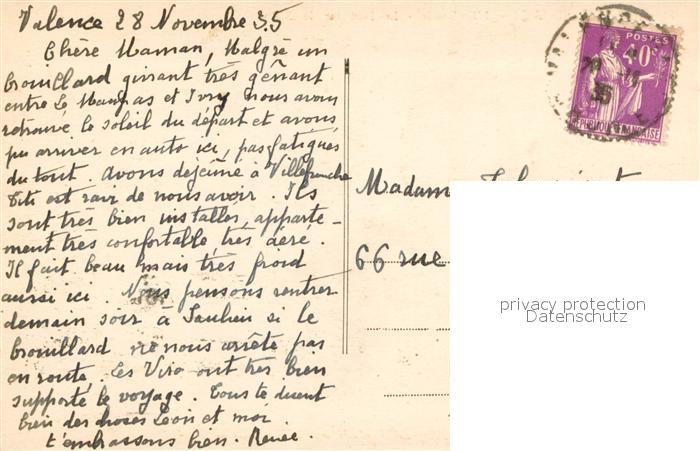 Valence 28 Novembre 35
Chère Maman, Malgré un
brouillard givrant très gênant
entre Le Maupas et Ivry nous avons
retrouvé le soleil du départ et avons
pu arriver en auto ici, pas fatigués
du tout. Avons déjeuné à Villefranche
Titi est ravi de nous avoir. Ils
sont très bien installés, apparte-
ment très confortable, très aéré.
Il fait beau mais très froid
aussi ici. Nous pensons rentrer
demain soir à Saulieu si le
brouillard ne nous arrête pas
en route. Les Viro ont très bien
supporté le voyage. Tous te disent
bien des choses Léon et moi
t'embrassons bien. Renée.
POSTES
40c
28
35
REPUBLIQUE FRANÇAISE
Madame
66 rue
privacy protection
Datenschutz